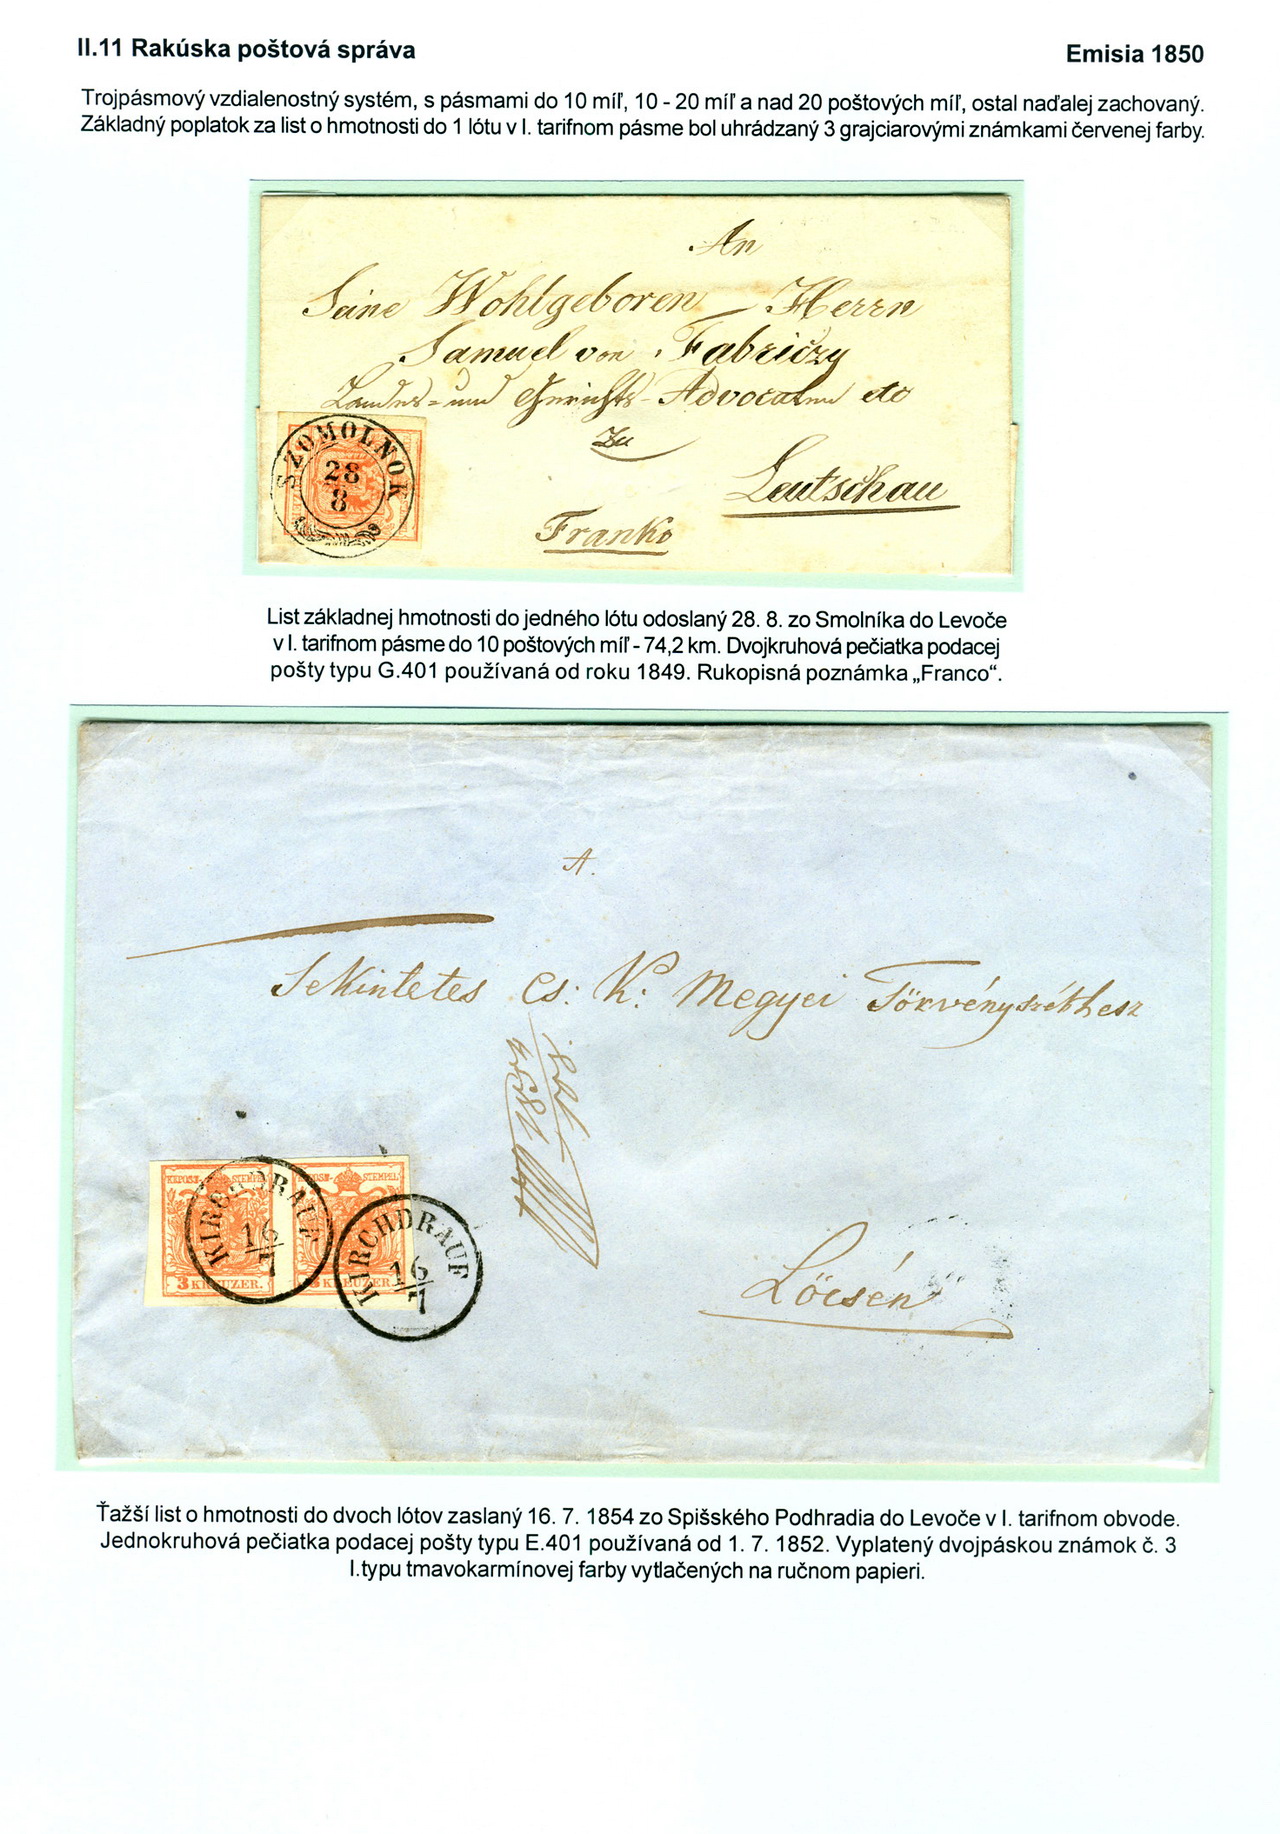 II.11 Rakúska poštová správa
Emisia 1850
Trojpásmový vzdialenostný systém, s pásmami do 10 míľ, 10 - 20 míľ a nad 20 poštových míľ, ostal naďalej zachovaný.
Základný poplatok za list o hmotnosti do 1 lótu v I. tarifnom pásme bol uhrádzaný 3 grajciarovými známkami červenej farby.
An
Seine Wohlgeboren Herrn
Samuel von Fabriczy
Landes- und Gerichts-Advocaten etc
zu
Leutschau
Franko
SZOMOLNOK
28
8
List základnej hmotnosti do jedného lótu odoslaný 28. 8. zo Smolníka do Levoče
v I. tarifnom pásme do 10 poštových míľ - 74,2 km. Dvojkruhová pečiatka podacej
pošty typu G.401 používaná od roku 1849. Rukopisná poznámka „Franco“.
A.
Tekintetes cs: K: Megyei Törvényszékhez
Löcsén
STEMPEL STEMPEL
KIRCHDRAUF
16
7
KIRCHDRAUF
16
7
3 KREUZER. KREUZER.
Ťažší list o hmotnosti do dvoch lótov zaslaný 16. 7. 1854 zo Spišského Podhradia do Levoče v I. tarifnom obvode.
Jednokruhová pečiatka podacej pošty typu E.401 používaná od 1. 7. 1852. Vyplatený dvojpáskou známok č. 3
I.typu tmavokarmínovej farby vytlačených na ručnom papieri.